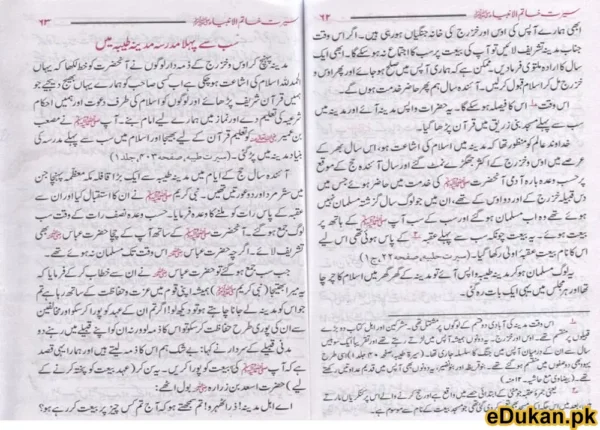 سیرت خاتم الانبیاء ﷺ
۶۲
ابھی ہمارے آپس کی اوس اور خزرج کی خانہ جنگیاں ہو رہی ہیں۔ اگر اس وقت
جناب مدینہ تشریف لائیں تو آپ کی بیعت پر سب کا اجتماع نہ ہو سکے گا۔ ابھی ایک
سال کا ارادہ ملتوی فرمادیں۔ ممکن ہے کہ ہماری آپس میں صلح ہو جائے اور پھر اوس و
خزرج مل کر اسلام قبول کریں۔ آئندہ سال ہم پھر حاضر خدمت ہوں گے۔
اس وقت اس کا فیصلہ ہو سکے گا۔ یہ حضرات واپس مدینہ آئے اور مدینہ میں
سب سے پہلے مسجد بنی زریق میں قرآن پڑھا گیا۔
خداوند عالم کو منظور تھا کہ مدینہ میں اسلام کی اشاعت ہو، اس سال بھر کے
عرصے میں اوس و خزرج کے اکثر جھگڑے نمٹ گئے اور سال آئندہ حج کے موقع
پر حسب وعدہ بارہ آدمی آنحضرت ﷺ کی خدمت میں حاضر ہوئے جن میں
دس قبیلہ خزرج کے اور دو اوس کے تھے۔ ان میں جو لوگ سال گزشتہ مسلمان نہیں
ہوئے تھے وہ اب مسلمان ہو گئے اور سب کے سب آپ ﷺ کے ہاتھ پر
بیعت ہوئے۔ یہ بیعت چونکہ سب سے پہلے عقبہ کے پاس ہوئی تھی اس لیے
اس کا نام بیعت عقبہ اولیٰ رکھا گیا۔ (سیرت حلبیہ صفحہ ۴۲، ج ۱)
یہ لوگ مسلمان ہو کر مدینہ طیبہ واپس آئے تو مدینہ کے گھر گھر میں اسلام کا چرچا
تھا اور ہر مجلس میں یہی ایک بات رہ گئی۔
اس وقت مدینہ کی آبادی دو قسم کے لوگوں پر مشتمل تھی۔ مشرکین اور اہل کتاب
سیرت خاتم الانبیاء ﷺ
۶۳
سب سے پہلا مدرسہ مدینہ طیبہ میں
مدینہ پہنچ کر اوس و خزرج کے ذمہ دار لوگوں نے آنحضرت کو خط لکھا کہ یہاں
الحمدللہ اسلام کی اشاعت ہو چکی ہے اب کسی صاحب کو ہمارے یہاں بھیج دیجیے جو
ہمیں قرآن شریف پڑھائے اور لوگوں کو اسلام کی طرف دعوت اور ہمیں احکام
شرعیہ کی تعلیم دے اور نماز میں ہمارے لیے امام بنے۔ آپ ﷺ نے مصعب
بن عمیر کو تعلیم قرآن کے لیے بھیجا اور اسلام میں سب سے پہلے مدرسہ کی
بنیاد مدینہ میں پڑ گئی۔ (سیرت حلبیہ، صفحہ ۴۰۳، جلد ۱)
آئندہ سال حج کے ایام میں مدینہ طیبہ سے ایک بڑا قافلہ مکہ معظمہ پہنچا جن
میں ستر مرد اور دو عورتیں تھیں۔ نبی کریم ﷺ نے ان کا استقبال کیا اور ان سے
عقبہ کے پاس رات کو ملنے کا وعدہ فرمایا۔ حسب وعدہ نصف رات کے وقت سب
لوگ جمع ہو گئے۔ آنحضرت ﷺ کے ساتھ آپ کے چچا حضرت عباس بھی
تشریف لائے۔ اگرچہ حضرت عباس اس وقت تک مسلمان نہ ہوئے تھے۔
جب سب جمع ہو گئے تو حضرت عباس نے ان سے خطاب کر کے فرمایا کہ
یہ میرا بھتیجا (نبی کریم ﷺ) ہمیشہ اپنی قوم میں عزت و حفاظت کے ساتھ رہا ہے تم
جو ان کو مدینہ لے جانا چاہتے ہو تو دیکھ لو اگر تم ان کے عہد کو پورا کر سکو اور مخالفین
سے ان کی پوری طرح حفاظت کر سکو تو اس کا ذمہ لو ورنہ ان کو اپنے قبیلے میں رہنے دو
مدنی قبیلے کے سردار نے کہا: بے شک ہم اس کا ذمہ لیتے ہیں اور ہمارا یہی قصد
ہے کہ آپ ﷺ کی بیعت کو پورا کریں۔ یہ سن کر (عہد بیعت کو پختہ کرنے کے
لیے) حضرت اسعد بن زرارہ بول اٹھے:
اے اہل مدینہ! ذرا ٹھہرو! تم سمجھتے ہو کہ آج تم کس چیز پر بیعت کر رہے ہو؟
eDukan.pk